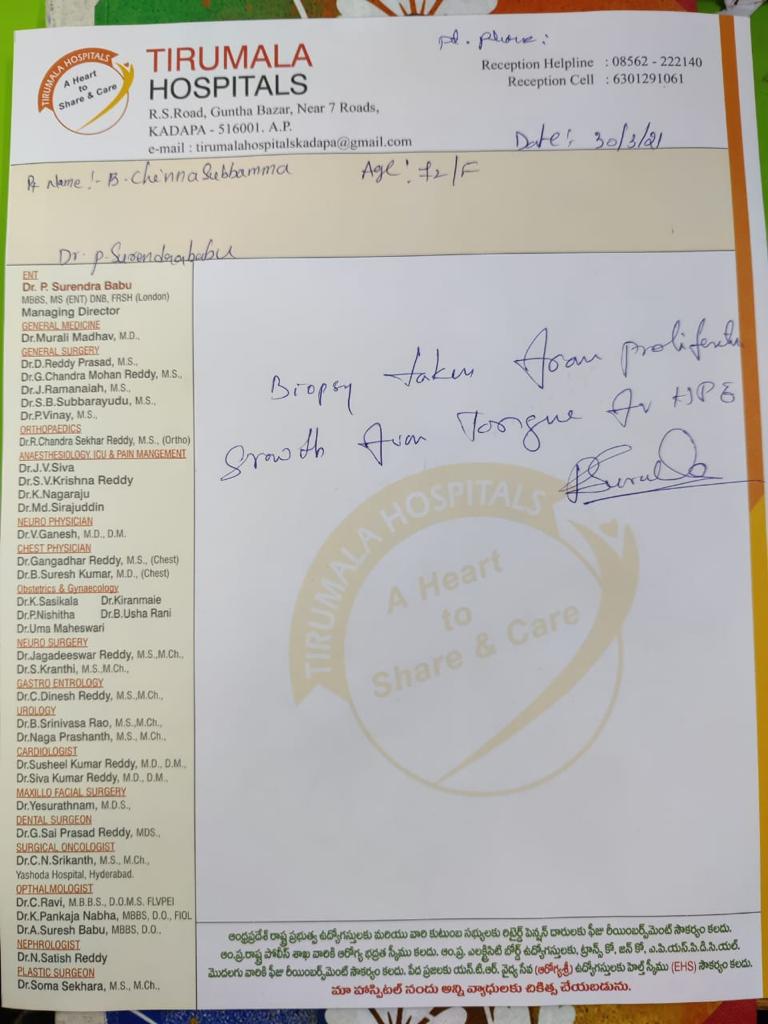 TIRUMALA HOSPITALS
A Heart
to
Share & Care
TIRUMALA
HOSPITALS
R.S.Road, Guntha Bazar, Near 7 Roads,
KADAPA - 516001. A.P.
e-mail : tirumalahospitalskadapa@gmail.com
pt. phone :
Reception Helpline : 08562 - 222140
Reception Cell : 6301291061
Date : 30/3/21
Pt Name :- B. Chinna Subbamma Age : 72/F
Dr. P. Surendrababu
ENT
Dr. P. Surendra Babu
MBBS, MS (ENT) DNB, FRSH (London)
Managing Director
GENERAL MEDICINE
Dr.Murali Madhav, M.D.,
GENERAL SURGERY
Dr.D.Reddy Prasad, M.S.,
Dr.G.Chandra Mohan Reddy, M.S.,
Dr.J.Ramanaiah, M.S.,
Dr.S.B.Subbarayudu, M.S.,
Dr.P.Vinay, M.S.,
ORTHOPAEDICS
Dr.R.Chandra Sekhar Reddy, M.S., (Ortho)
ANAESTHESIOLOGY, ICU & PAIN MANGEMENT
Dr.J.V.Siva
Dr.S.V.Krishna Reddy
Dr.K.Nagaraju
Dr.Md.Sirajuddin
NEURO PHYSICIAN
Dr.V.Ganesh, M.D., D.M.
CHEST PHYSICIAN
Dr.Gangadhar Reddy, M.S., (Chest)
Dr.B.Suresh Kumar, M.D., (Chest)
Obstetrics & Gynaecology
Dr.K.Sasikala Dr.Kiranmaie
Dr.P.Nishitha Dr.B.Usha Rani
Dr.Uma Maheswari
NEURO SURGERY
Dr.Jagadeeswar Reddy, M.S.,M.Ch.,
Dr.S.Kranthi, M.S.,M.Ch.,
GASTRO ENTROLOGY
Dr.C.Dinesh Reddy, M.S.,M.Ch.,
UROLOGY
Dr.B.Srinivasa Rao, M.S.,M.Ch.,
Dr.Naga Prashanth, M.S., M.Ch.,
CARDIOLOGIST
Dr.Susheel Kumar Reddy, M.D., D.M.,
Dr.Siva Kumar Reddy, M.D., D.M.,
MAXILLO FACIAL SURGERY
Dr.Yesurathnam, M.D.S.,
DENTAL SURGEON
Dr.G.Sai Prasad Reddy, MDS.,
SURGICAL ONCOLOGIST
Dr.C.N.Srikanth, M.S., M.Ch.,
Yashoda Hospital, Hyderabad.
OPTHALMOLOGIST
Dr.C.Ravi, M.B.B.S., D.O.M.S. FLVPEI
Dr.K.Pankaja Nabha, MBBS, D.O., FIOL
Dr.A.Suresh Babu, MBBS, D.O..
NEPHROLOGIST
Dr.N.Satish Reddy
PLASTIC SURGEON
Dr.Soma Sekhara, M.S., M.Ch.,
Biopsy taken from
growth from Tongue for HPE
TIRUMALA HOSPITALS
A Heart
to
Share & Care
ఆంధ్రప్రదేశ్ రాష్ట్ర ప్రభుత్వ ఉద్యోగస్తులకు మరియు వారి కుటుంబ సభ్యులకు రిటైర్డ్ పెన్షన్ దారులకు ఫీజు రీయింబర్స్‌మెంట్ సౌకర్యం కలదు.
ఆం.ప్ర.రాష్ట్ర పోలీస్ శాఖ వారికి ఆరోగ్య భద్రత స్కీము కలదు. ఆం.ప్ర. ఎలక్ట్రిసిటి బోర్డ్ ఉద్యోగస్తులకు, ట్రాన్స్ కో, జన్ కో, ఎ.పి.యస్.పి.డి.సి.యల్.
మొదలగు వారికి ఫీజు రీయింబర్స్‌మెంట్ సౌకర్యం కలదు. పేద ప్రజలకు యన్.టి.ఆర్. వైద్య సేవ (ఆరోగ్యశ్రీ) ఉద్యోగస్తులకు హెల్త్ స్కీము (EHS) సౌకర్యం కలదు.
మా హాస్పిటల్ నందు అన్ని వ్యాధులకు చికిత్స చేయబడును.